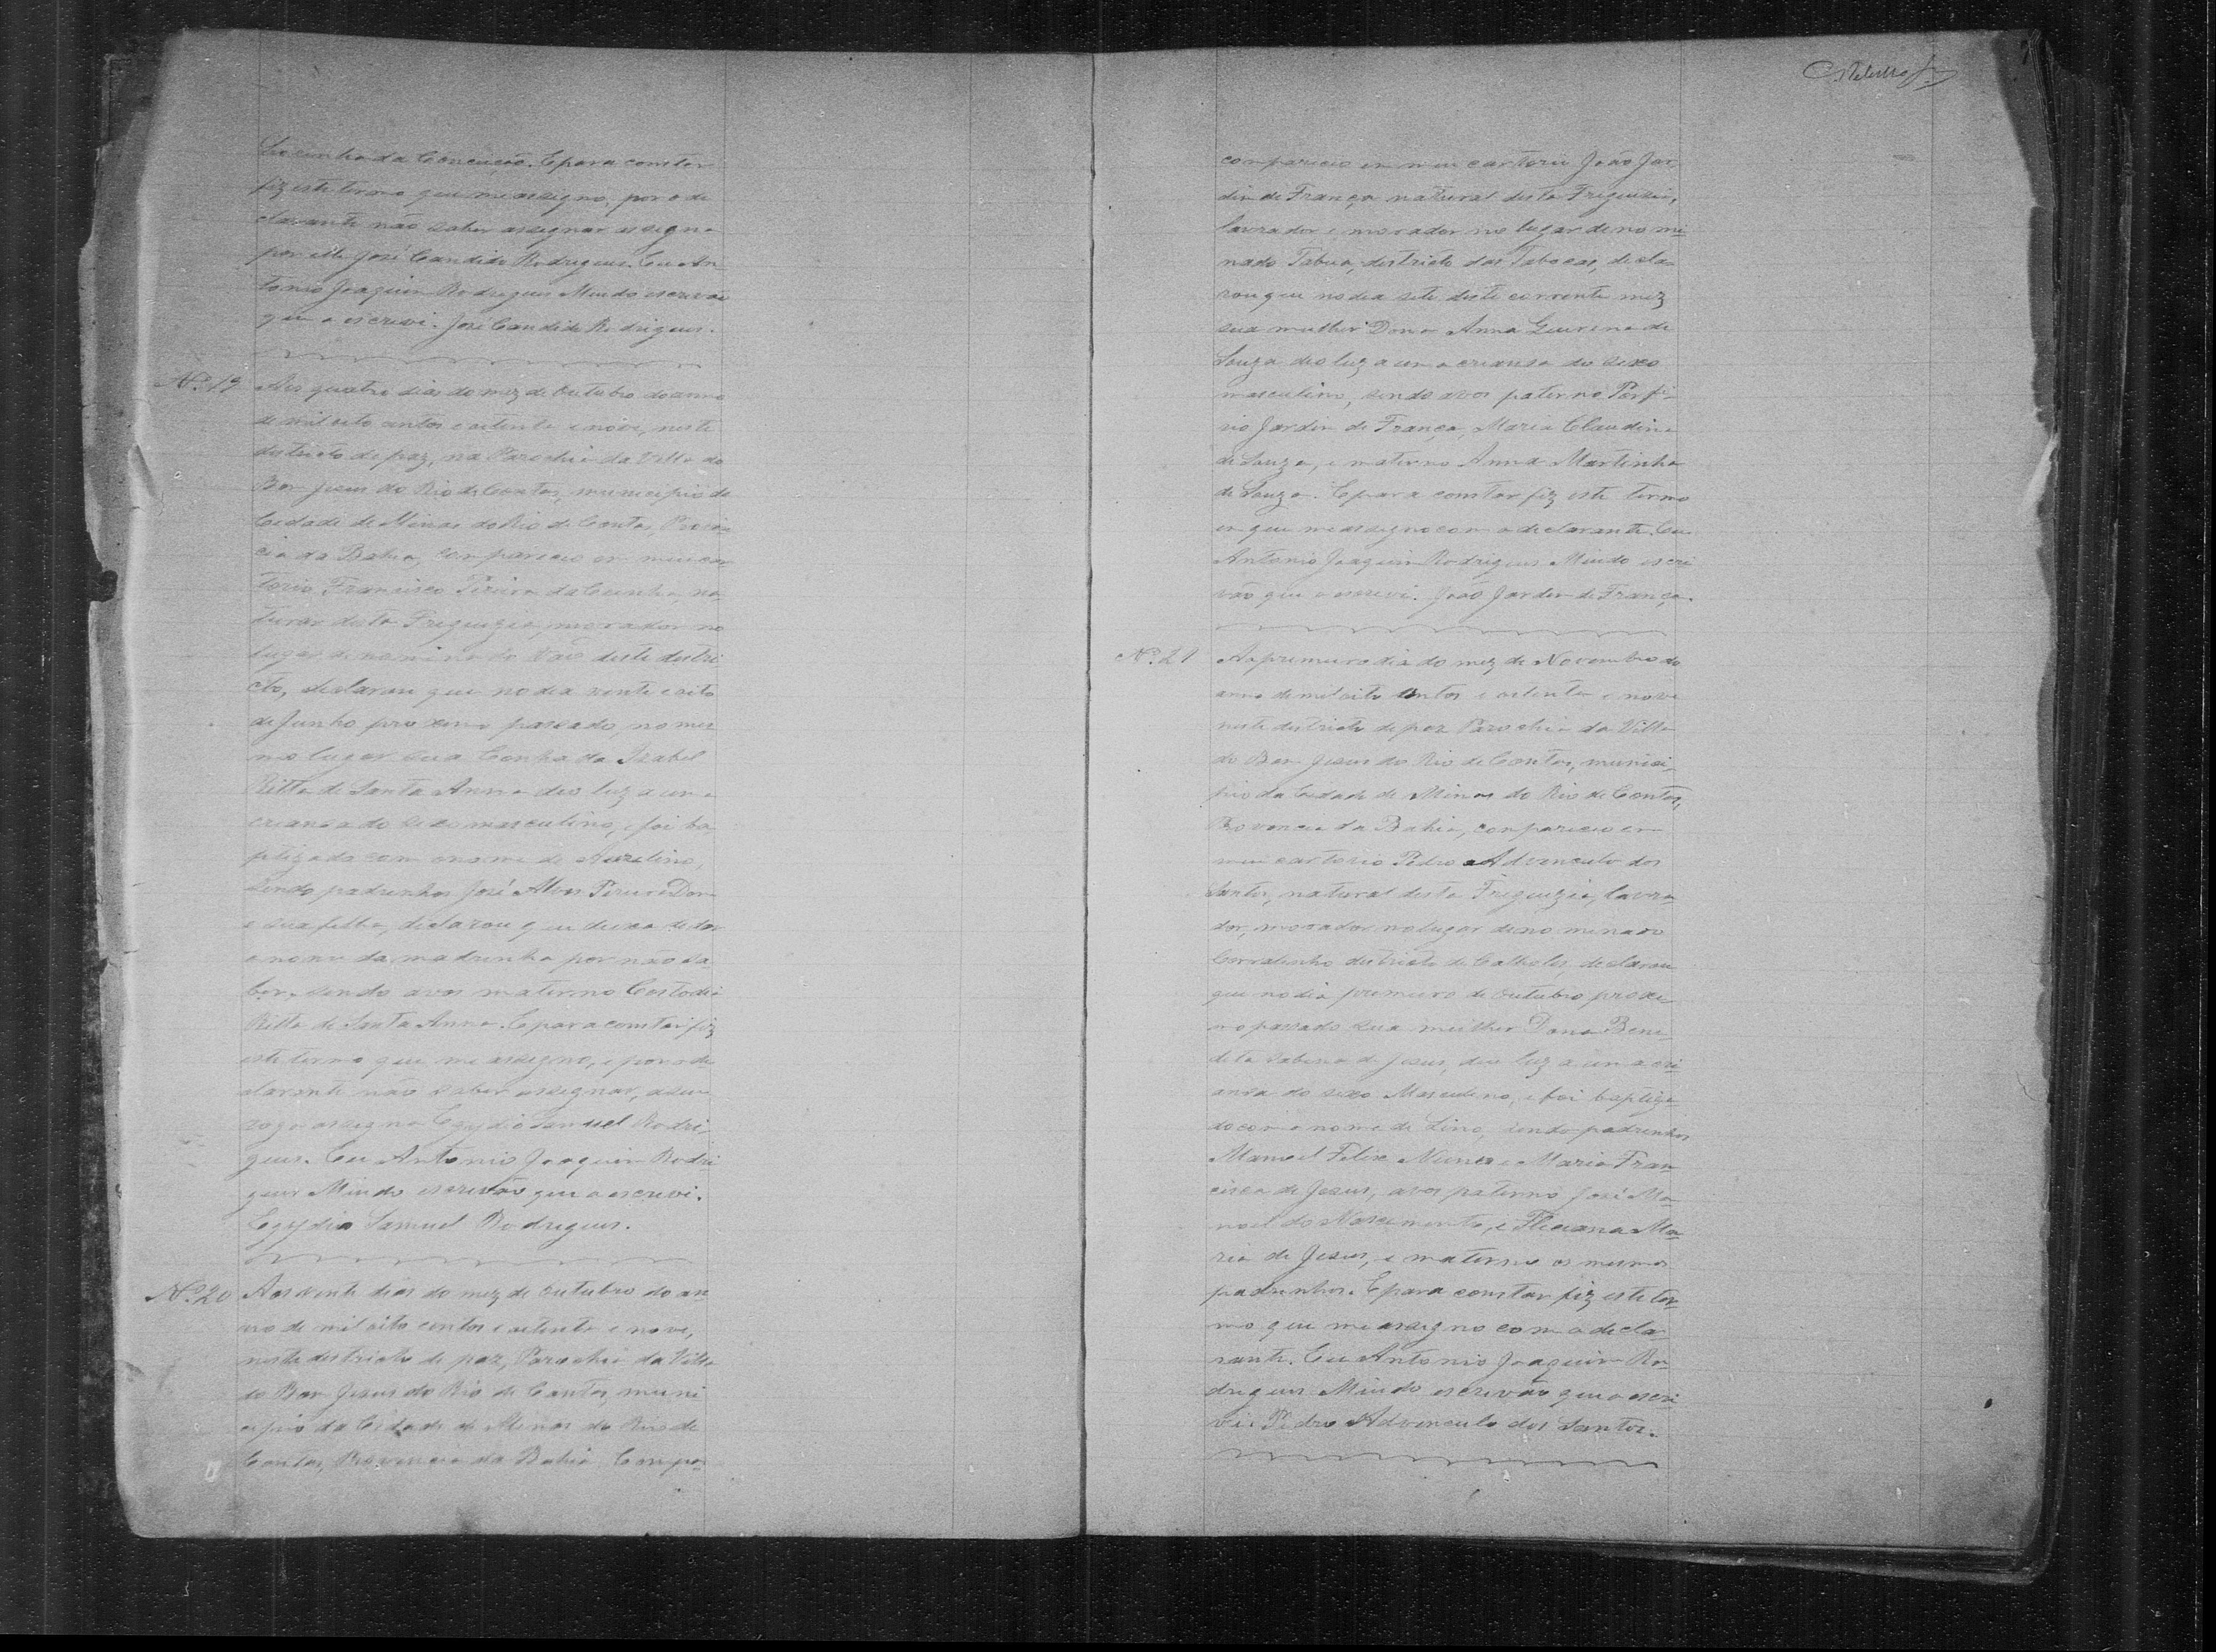 da Conceição. E para constar
fiz este termo que me assigno, por o de
clarante não saber assignar assigna
por elle José Candido Rodrigues. Eu An
tonio Joaquim Rodrigues Miudo escrivão
que o escrevi. José Candido Rodrigues.
Nº 19 Aos quatro dias do mez de Outubro do anno
de mil oito centos e oitenta e nove, neste
districto de paz, na Parochia da Villa do
Bom Jesus do Rio de Contas, municipio da
Cidade de Minas do Rio de Contas, Provin
cia da Bahia, compareceo em meu car
torio Francisco Pereira da Cunha, na
tural desta Freguezia, morador no
lugar denominado Vão deste distri
cto, declarou que no dia vinte e oito
de Junho proximo passado, no mes
mo lugar sua Cunhada Izabel
Ritta de Santa Anna deo luz a uma
creansa do sexo masculino, e foi ba
ptizado com o nome de Aurelino,
sendo padrinhos José Alves Pereira Don
e sua filha, declarou que deixa de dar
o nome da madrinha por não sa
ber, sendo avos materno Costodia
Ritta de Santa Anna. E para constar fiz
este termo que me assigno, e por o de
clarante não saber assignar, a seu
rogo assigna Egydio Samuel Rodri
gues. Eu Antonio Joaquim Rodri
gues Miudo escrivão que o escrevi.
Egydio Samuel Rodrigues.
Nº 20 Aos vinte dias do mez de Outubro do an
no de mil oito centos e oitenta e nove,
neste districto de paz, Parochia da Villa
do Bom Jesus do Rio de Contas, muni
cipio da Cidade de Minas do Rio de
Contas, Provincia da Bahia, Compa
compareceo em meu cartorio João Jar
dim de França natural desta Freguezia,
lavrador e morador no lugar denomi
nado Tabua, districto das Tabocas, decla
rou que no dia sete deste corrente mez
sua mulher Dona Anna de
Souza deo luz a uma creansa do sexo
masculino, sendo avos paterno Porfi
rio Jardim de França, Maria Claudina
de Souza, e materno Anna Martinha
de Souza. E para constar fiz este termo
em que me assigno com o declarante. Eu
Antonio Joaquim Rodrigues Miudo escri
vão que o escrevi. João Jardim de França.
Nº 21 Ao primeiro dia do mez de Novembro do
anno de mil oito centos e oitenta e nove
neste districto de paz Parochia da Villa
do Bom Jesus do Rio de Contas, munici
pio da Cidade de Minas do Rio de Contas,
Provincia da Bahia, compareceo em
meu cartorio Pedro Advinculo dos
Santos, natural desta Freguezia, lavra
dor, morador no lugar denominado
Corralinho districto de Catholes, declarou
que no dia primeiro de Outubro proxi
mo passado sua mulher Dona Bene
dita Sabina de Jesus, deo luz a uma cri
ansa do sexo Masculino, e foi baptiza
do com o nome de Lino, sendo padrinhos
Manoel Felix Nunes e Maria Fran
cisca de Jesus, avos paterno José Ma
noel do Nascimento, e Ma
ria de Jesus, e materno os mesmos
padrinhos. E para constar fiz este ter
mo que me assigno com o decla
rante. Eu Antonio Joaquim Ro
drigues Miudo escrivão que o escre
vi. Pedro Advinculo dos Santos.